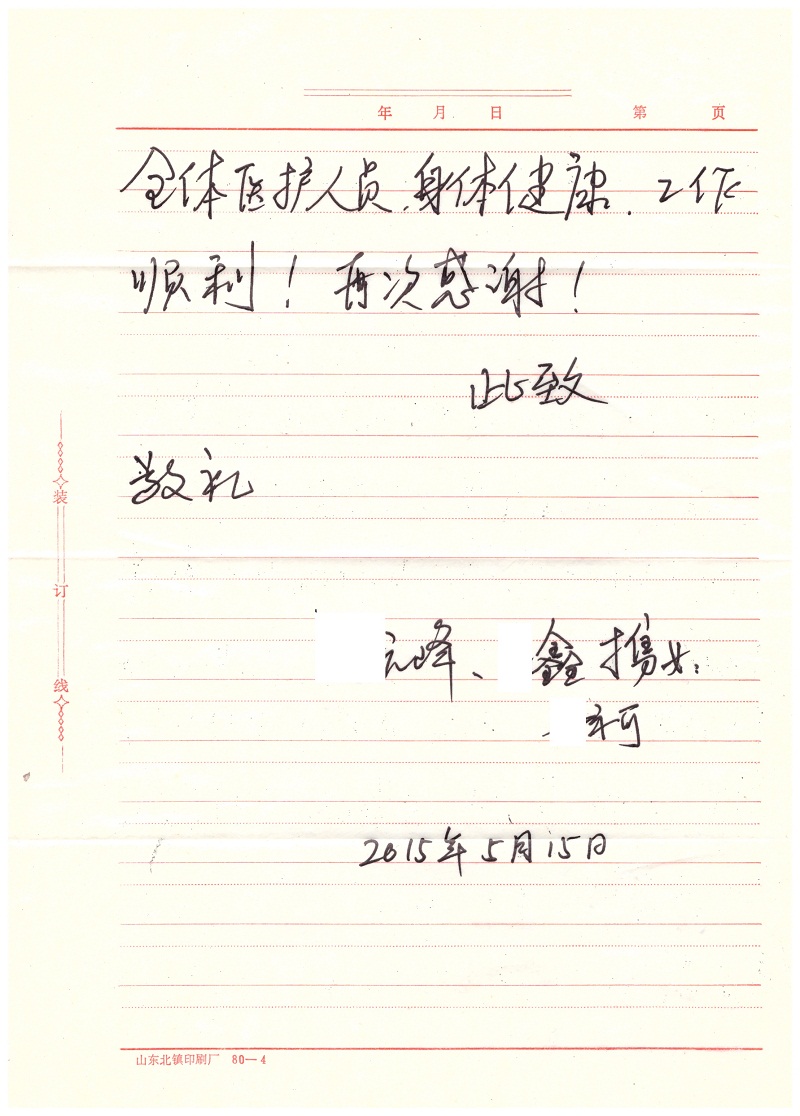 年 月 日 第 页
全体医护人员、身体健康、工作
顺利！再次感谢！
此致
敬礼
元峰、 鑫携女：
珂
2015年5月15日
装订线
山东北镇印刷厂 80—4